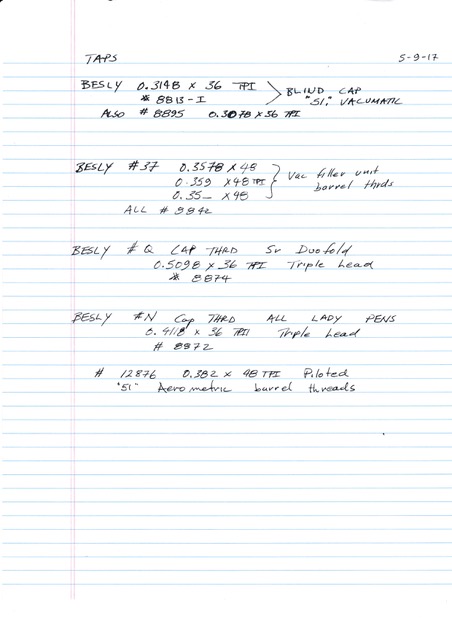 TAPS 5-9-17
BESLY 0.3148 x 36 TPI
# 8813-I
BLIND CAP
"51," VACUMATIC
ALSO # 8895 0.3078 x 36 TPI
BESLY #37 0.3578 x 48
0.359 x 48 TPI
0.35_ x 48
Vac filler unit
barrel thrds
ALL # 8842
BESLY # Q CAP THRD Sr Duofold
0.5098 x 36 TPI Triple Lead
# 8874
BESLY #N Cap THRD ALL LADY PENS
0.4118 x 36 TPI Triple Lead
# 8872
# 12876 0.382 x 48 TPI Piloted
"51" Aerometric barrel threads